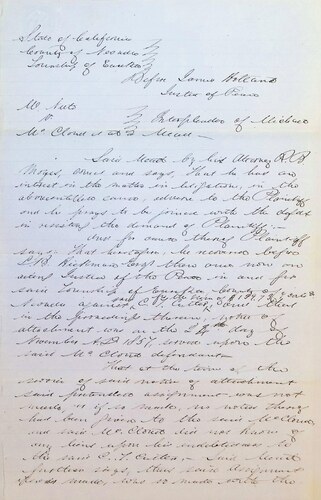 State of California
County of Nevada
Township of Eureka
Before James Holland
Justice of Peace
Mc Nuts
vs
Mc Cloud & Meade
Interpleader of Michael
Said Meade by his Attorney
Moyes, comes and says, that he has an
interest in the matter in litigation, in the
above entitled cause, adverse to the Plaintiff
and he prays to be joined with the defts
in resisting the demand of Plaintiff
And for cause thereof Plaintiff
says, that heretofore, he recovered before
Esqr then and now an
acting Justice of the Peace in and for
said Township of Eureka County of
Nevada against
in the proceedings therein, notice of
attachment was on the 24th day of
November A.D 1857 served upon the
said Mc Cloud defendant
That at the time of the
service of said notice of attachment
said pretended assignment was not
made, or if so made, no notice thereof
had been given to the said Mc Cloud
and said Mc Cloud did not know of
any liens upon his indebtedness to
the said Said Meade
further says, that said assignment
if made, was so made with the